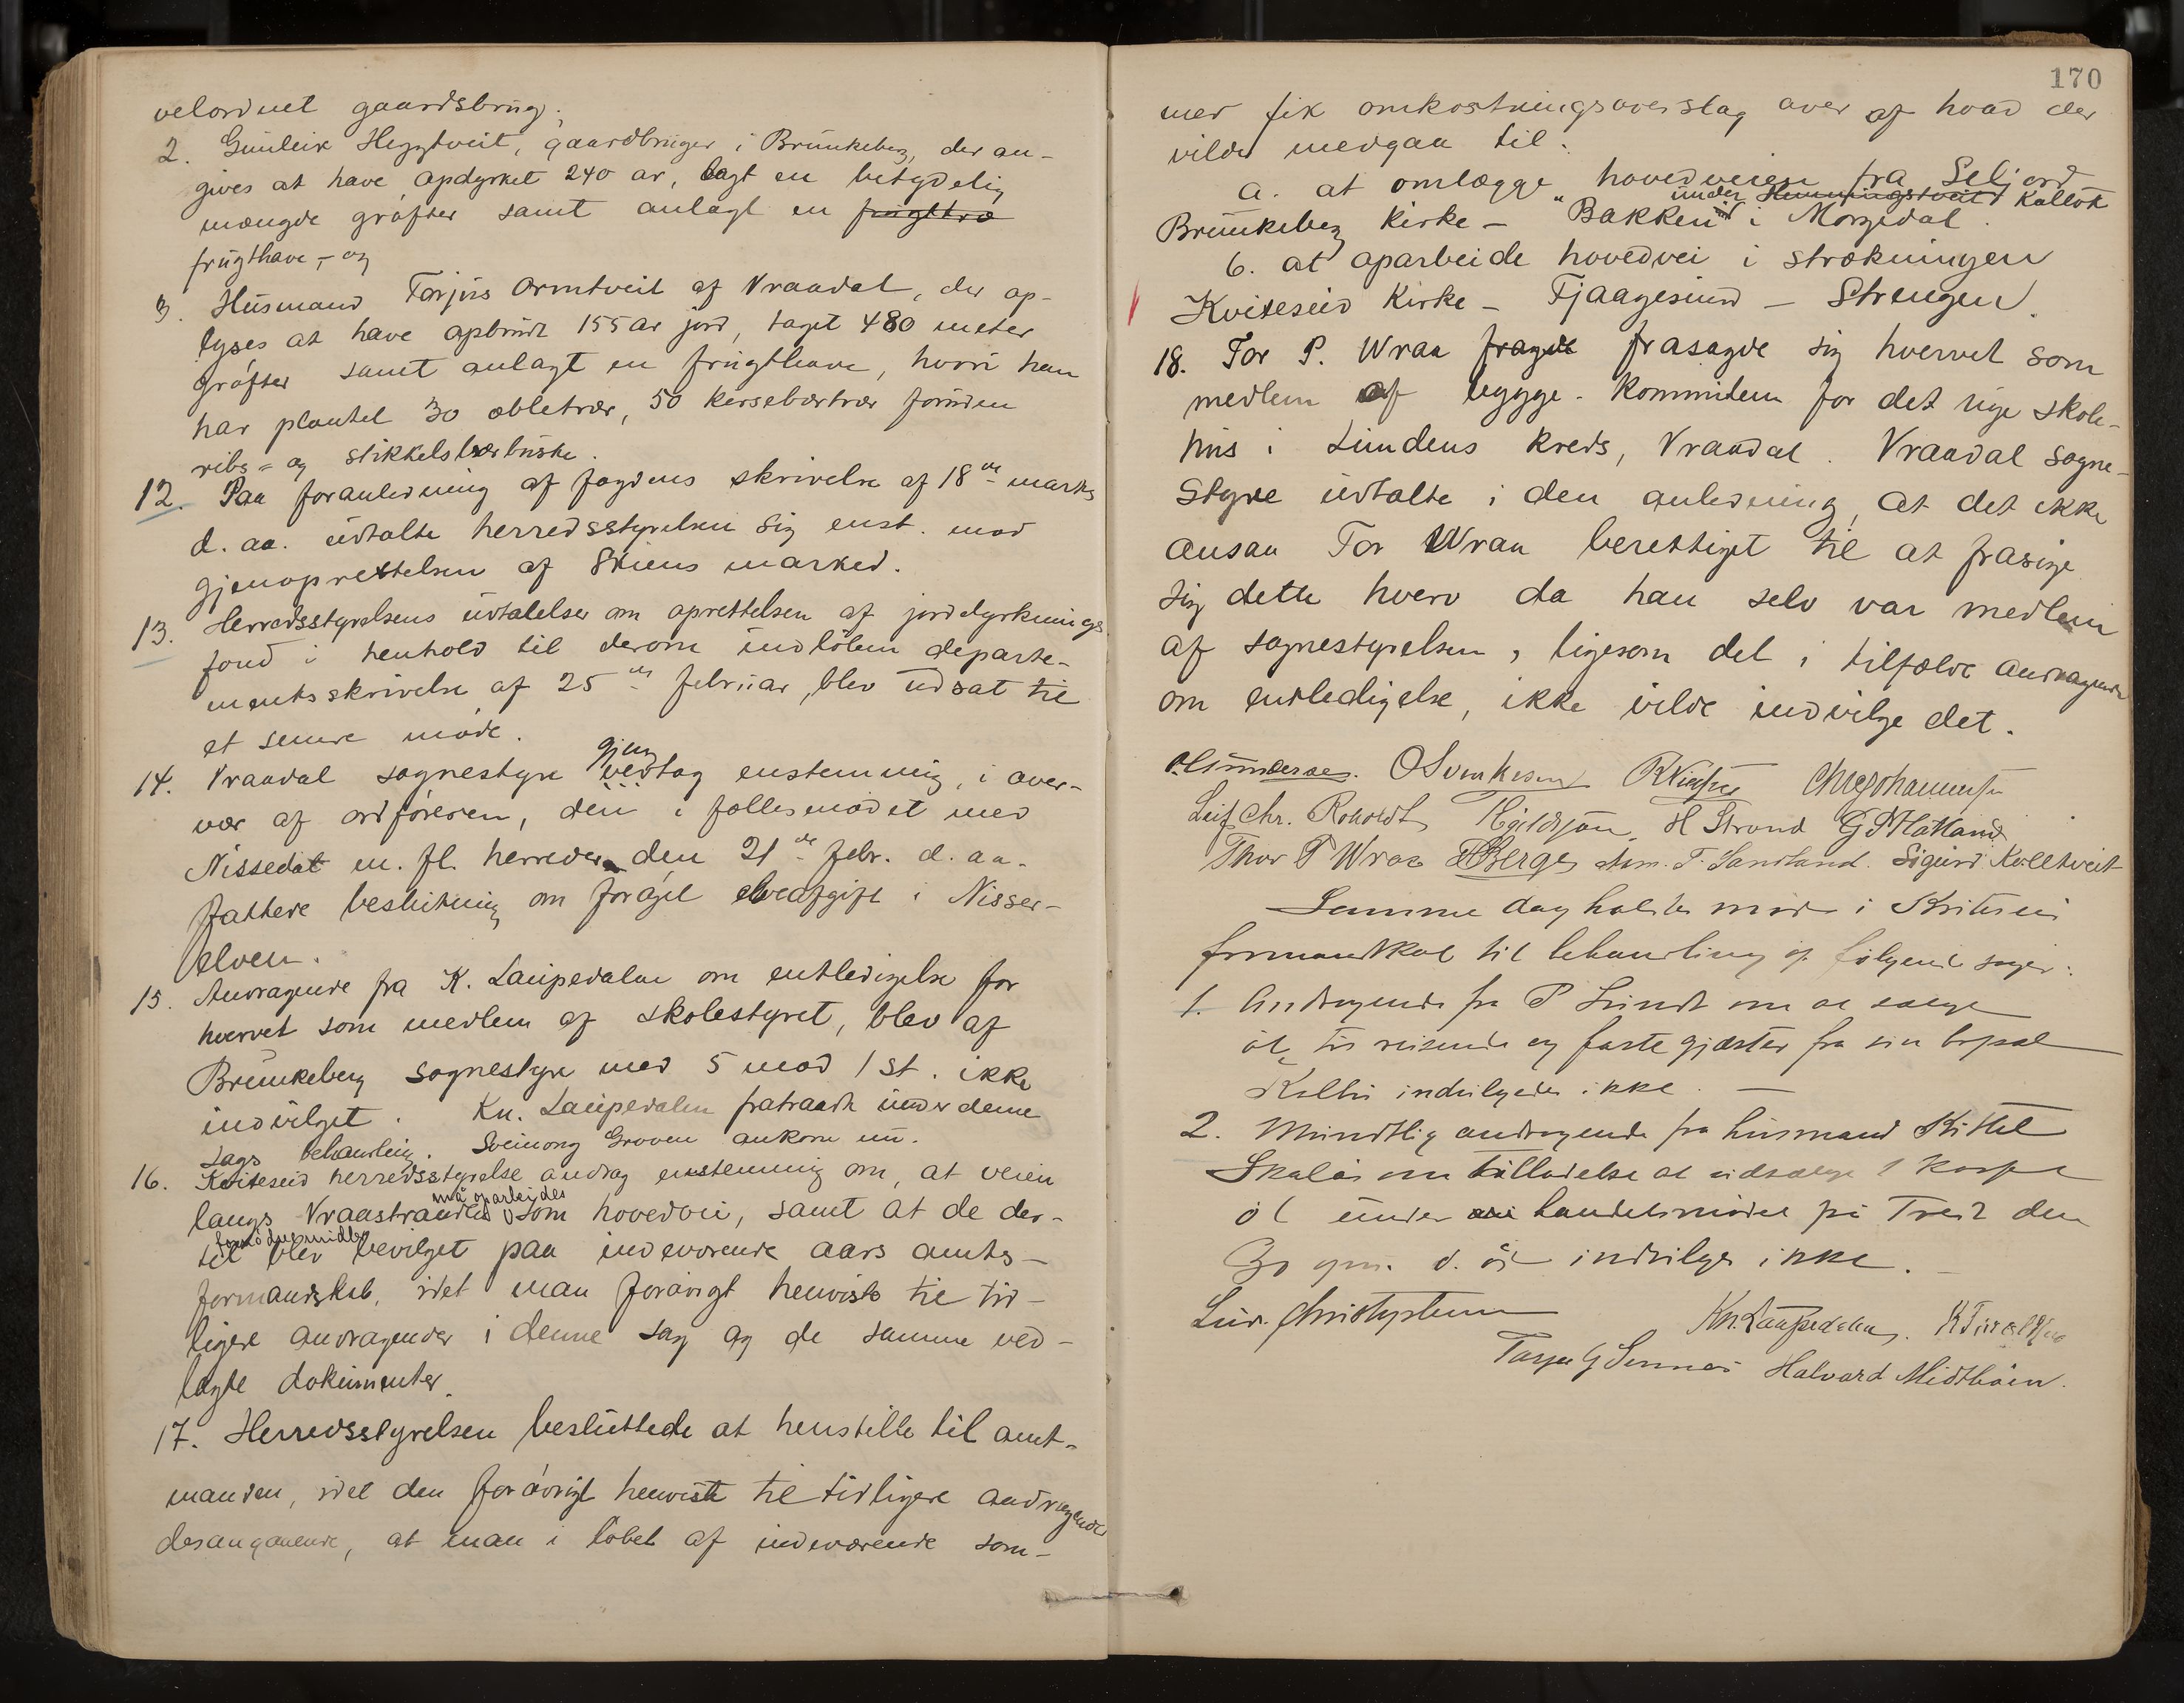 velordnet gaardsbrug.
2. Gunleik Heggtveit, gaardbruger i Brunkeberg, der an-
gives at have opdyrket 240 ar, lagt en betydelig
mængde grøfter samt anlagt en frugttræ
frugthave, - og
3. Husmand Torjus Ormtveit af Vraadal, der op-
lyses at have opbrudt 155 ar jord, taget 480 meter
grøfter samt anlagt en frugthave, hvori han
har plantet 30 æbletrær, 50 kirsebærtrær foruden
ribs- og stikkelsbærbuske.
12. Paa foranledning af fogdens skrivelse af 18de marts
d. aa. udtalte herredsstyrelsen sig enst. mod
gjenoprettelsen af Skiens marked.
13. Herredsstyrelsens udtalelser om oprettelsen af jorddyrknings
fond i henhold til derom indløben departe-
mentsskrivelse af 25de februar, blev udsat til
et senere møde.
14. Vraadal sognestyre gjen vedtog enstemmig, i over-
vær af ordføreren, den i fællesmødet med
Nissedal m. fl. herreder den 21de febr. d. aa.
fattede beslutning om forøget elveafgift i Nisser-
elven.
15. Andragende fra K. Laupedalen om entledigelse for
hvervet som medlem af skolestyret, blev af
Brunkeberg sognestyre med 5 mod 1 st. ikke
indvilget. Kn. Laupedalen fratraadte under denne
sags behandling. Sveinong Groven ankom nu.
16. Kviteseid herredsstyrelse androg enstemmig om, at veien
må oparbeides
langs Vraastranden som hovedvei, samt at de der-
fornødne midler
til blev bevilget paa indeværende aars amts-
formandskab, idet man forøvrigt henviste til tid-
ligere andragender i denne sag og de samme ved-
lagte dokumenter.
17. Herredsstyrelsen besluttede at henstille til amt-
manden, idet den forøvrigt henviste til tidligere andragender
desangaaende, at man i løbet af indeværende som-
170
mer fik omkostningsoverslag over af hvad der
vilde medgaa til:
a. at omlægge hovedveien fra Seljord
under Henningstveit Kallok
Brunkeberg kirke - Bakken i Morgedal.
b. at oparbeide hovedvei i strækningen
Kviteseid kirke - Fjaagesund - Strengen.
18. Tor P. Wraa fragde frasagde sig hvervet som
medlem af bygge-kommiteen for det nye skole-
hus i Lundens kreds, Vraadal. Vraadal sogne-
styre udtalte i den anledning, at det ikke
ansaa Tor Wraa berettiget til at frasige
sig dette hverv da han selv var medlem
af sognestyrelsen, ligesom det i tilfælde andragende
om entledigelse, ikke vilde indvilge det.
O. Svenkesen
Leif Chr. Roholdt H Strand
Thor P Wraa H Berge T. Sandland. Sigurd Kolltveit
Samme dag holdtes møde i Kviteseid
formandskab til behandling af følgende sager:
1. Andragende fra P Lundt om at sælge
øl til reisende og faste gjæster fra sin bopæl
indvilgedes ikke. -
2. Mundtlig andragende fra husmand Kittel
Skalås om tilladelse at udsælge 1 kasse
øl under handelsmødet på Treit den
indvilges ikke. -
Kn. Laupedalen.
Halvard Midtbøen.